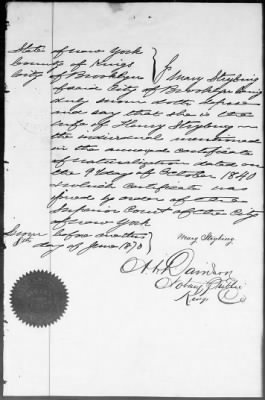 State of New York
County of Kings
City of Brooklyn
Mary Strybing
of said City of Brooklyn being
duly sworn doth depose
and say that she is the
wife of Henry Strybing
the individual mentioned
in the annexed certificate
of naturalization dated on
the 9 day of October 1840
which Certificate was
by order of the
Superior Court of the City
of New York
Sworn before me this
8th day of June 1870
Mary Strybing
Davidson
Notary Public
Kings Co